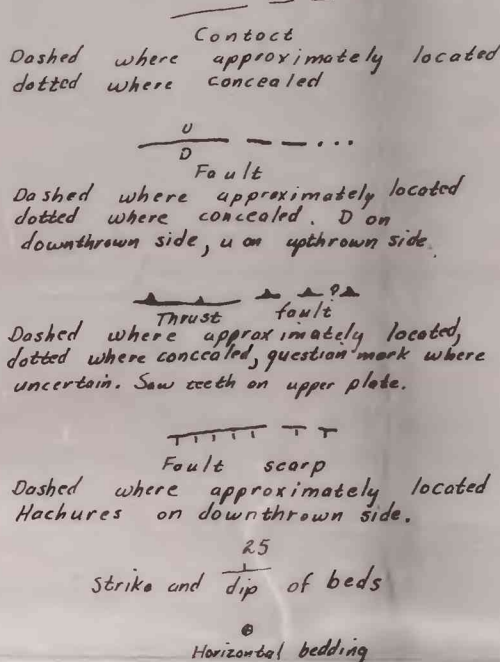 Contact
Dashed where approximately located
dotted where concealed
U
D
Fault
Dashed where approximately located
dotted where concealed. D on
downthrown side, u on upthrown side.
?
Thrust fault
Dashed where approximately located,
dotted where concealed, question mark where
uncertain. Saw teeth on upper plate.
Fault scarp
Dashed where approximately located
Hachures on downthrown side.
25
Strike and dip of beds
Horizontal bedding